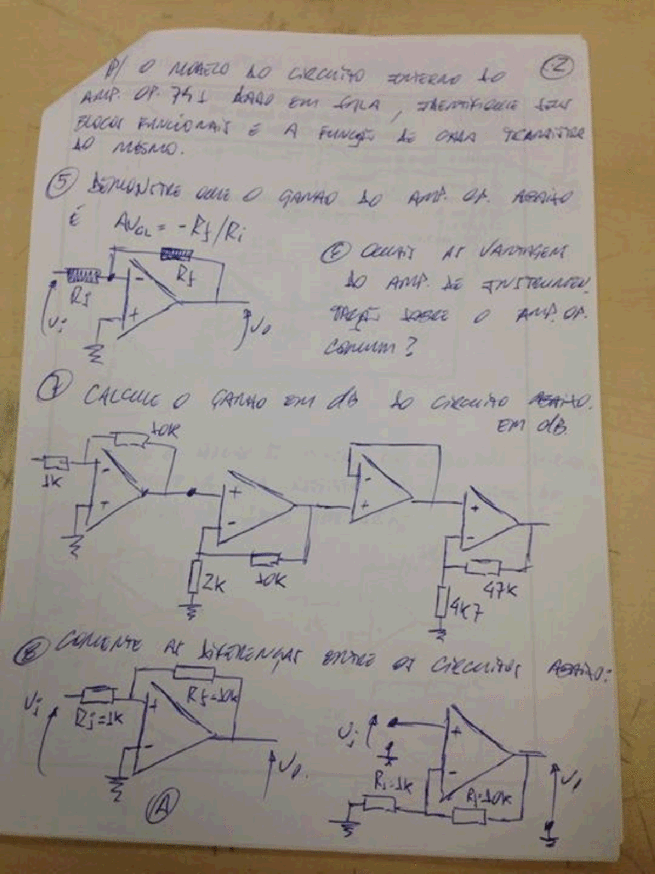 P/ O MODELO DO CIRCUITO INTERNO DO
2
AMP. OP. 741 DADO EM SALA, IDENTIFIQUE SEUS
BLOCOS FUNCIONAIS E A FUNÇÃO DE CADA TRANSISTOR
DO MESMO.
5 DEMONSTRE QUE O GANHO DO AMP. OP. ABAIXO
É AVCL = -Rf/Ri
Rf
Ri
-
+
Vi
Vo
6 QUAIS AS VANTAGEM
DO AMP. DE INSTRUMEN.
TAÇÃO SOBRE O AMP. OP.
COMUM?
7 CALCULE O GANHO EM dB DO CIRCUITO ABAIXO.
EM dB.
10K
1K
-
+
+
-
2K
10K
-
+
+
-
47K
4K7
8 COMENTE AS DIFERENÇAS ENTRE OS CIRCUITOS ABAIXO:
Vi
Ri=1K
Rf=10K
+
-
Vo.
A
Vi
+
-
Ri=1K
Vo